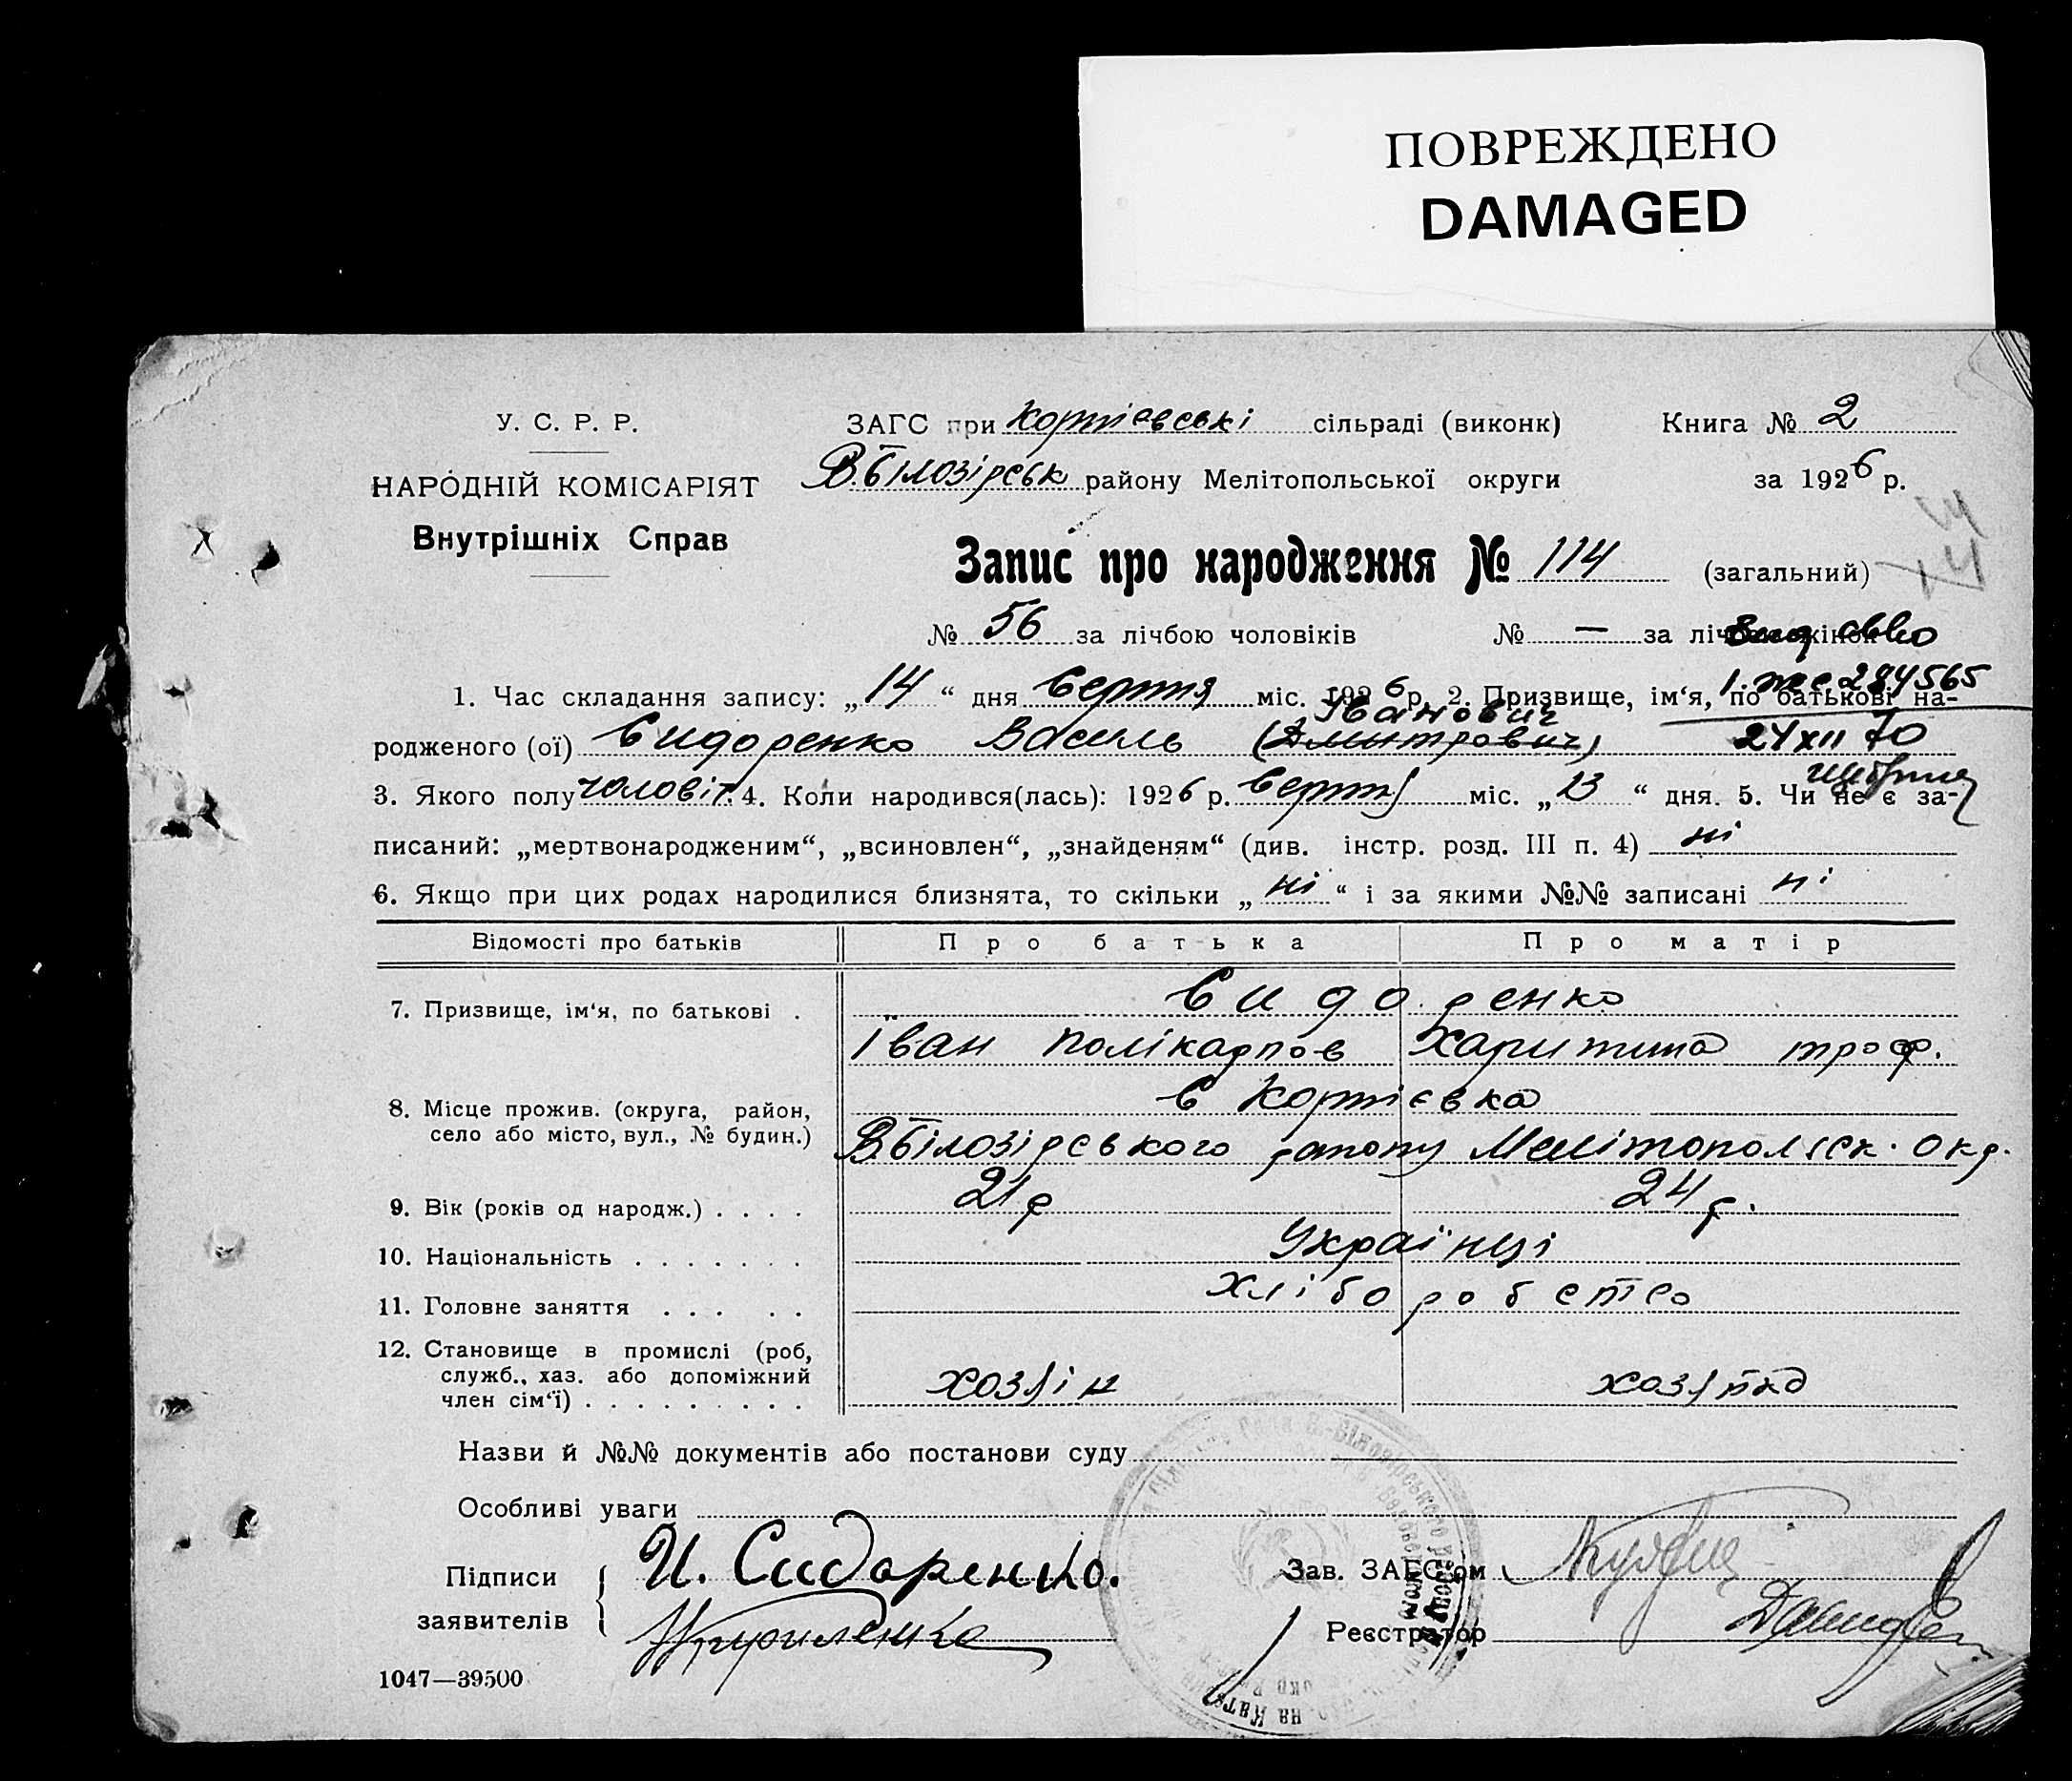 ПОВРЕЖДЕНО
DAMAGED
У. С. Р. Р.
НАРОДНІЙ КОМІСАРІЯТ
Внутрішніх Справ
ЗАГС при Корніевські сільраді (виконк)
В.Білозірськ району Мелітопольської округи
Книга № 2
за 1926 р.
Запис про народження № 114 (загальний)
№ 56 за лічбою чоловіків № — за лічбою жінок
1. Час складання запису: „14“ дня Серпня міс. 1926 р. 2. Призвище, ім‘я, по батькові на-
родженого (ої) Сидоренко Василь (Дмитрович) Іванович
284565
24 XII 70
3. Якого полу чоловіч. 4. Коли народився(лась): 1926 р. Серпня міс. „13“ дня. 5. Чи не є за-
писаний: „мертвонародженим“, „всиновлен“, „знайденям“ (див. інстр. розд. III п. 4) ні
6. Якщо при цих родах народилися близнята, то скільки „ні“ і за якими №№ записані ні
Відомості про батьків Про батька Про матір
7. Призвище, ім‘я, по батькові . Сидоренко
Іван Полікарпов Харитина Троф.
8. Місце прожив. (округа, район, село або місто, вул., № будин.) С Корнієвка
В.Білозірського району Мелітопольськ. Окр.
9. Вік (років од народж.) . . . . 21 р 24 р.
10. Національність . . . . . . . Українці
11. Головне заняття . . . . . Хліборобство
12. Становище в промислі (роб,
служб., хаз. або допоміжний
член сім‘ї) . . . . . . . . . хозяін хозяйка
Назви й №№ документів або постанови суду
Особливі уваги
Підписи
заявителів
И. Сидоренко.
Кириленко
Зав. ЗАГС‘ом
Реєстратор
1047—39500